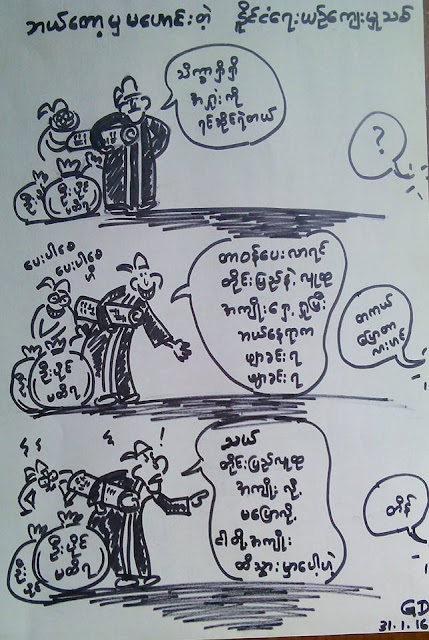 ဘယ်တော့မှ မဟောင်းတဲ့ နိုင်ငံရေးယဉ်ကျေးမှုသစ်
သိက္ခာရှိရှိ
အရှုံးကို
ရင်ဆိုင်ရဲတယ်
?
ဦးပိုင်
မထိရ
ပေးပါစေ
ပေးပါစေ
ဟီ
တာဝန်ပေးလာရင်
တိုင်းပြည်နဲ့ လူထု
အကျိုးရှေ့ရှုပြီး
ဘယ်နေရာက
ဖျာခင်းရ
ဖျာခင်းရ
တကယ်
ပြောတာ
လားဟင်
ဦးပိုင်
မထိရ
!
သယ်
တိုင်းပြည်လူထု
အကျိုး လို့
မပြောလို့
ငါတို့အကျိုး
ထိသွားမှာပေါ့ဟဲ့
တိန်
ဦးပိုင်
မထိရ
ဦး
ပိုင်
GD
31.1.16